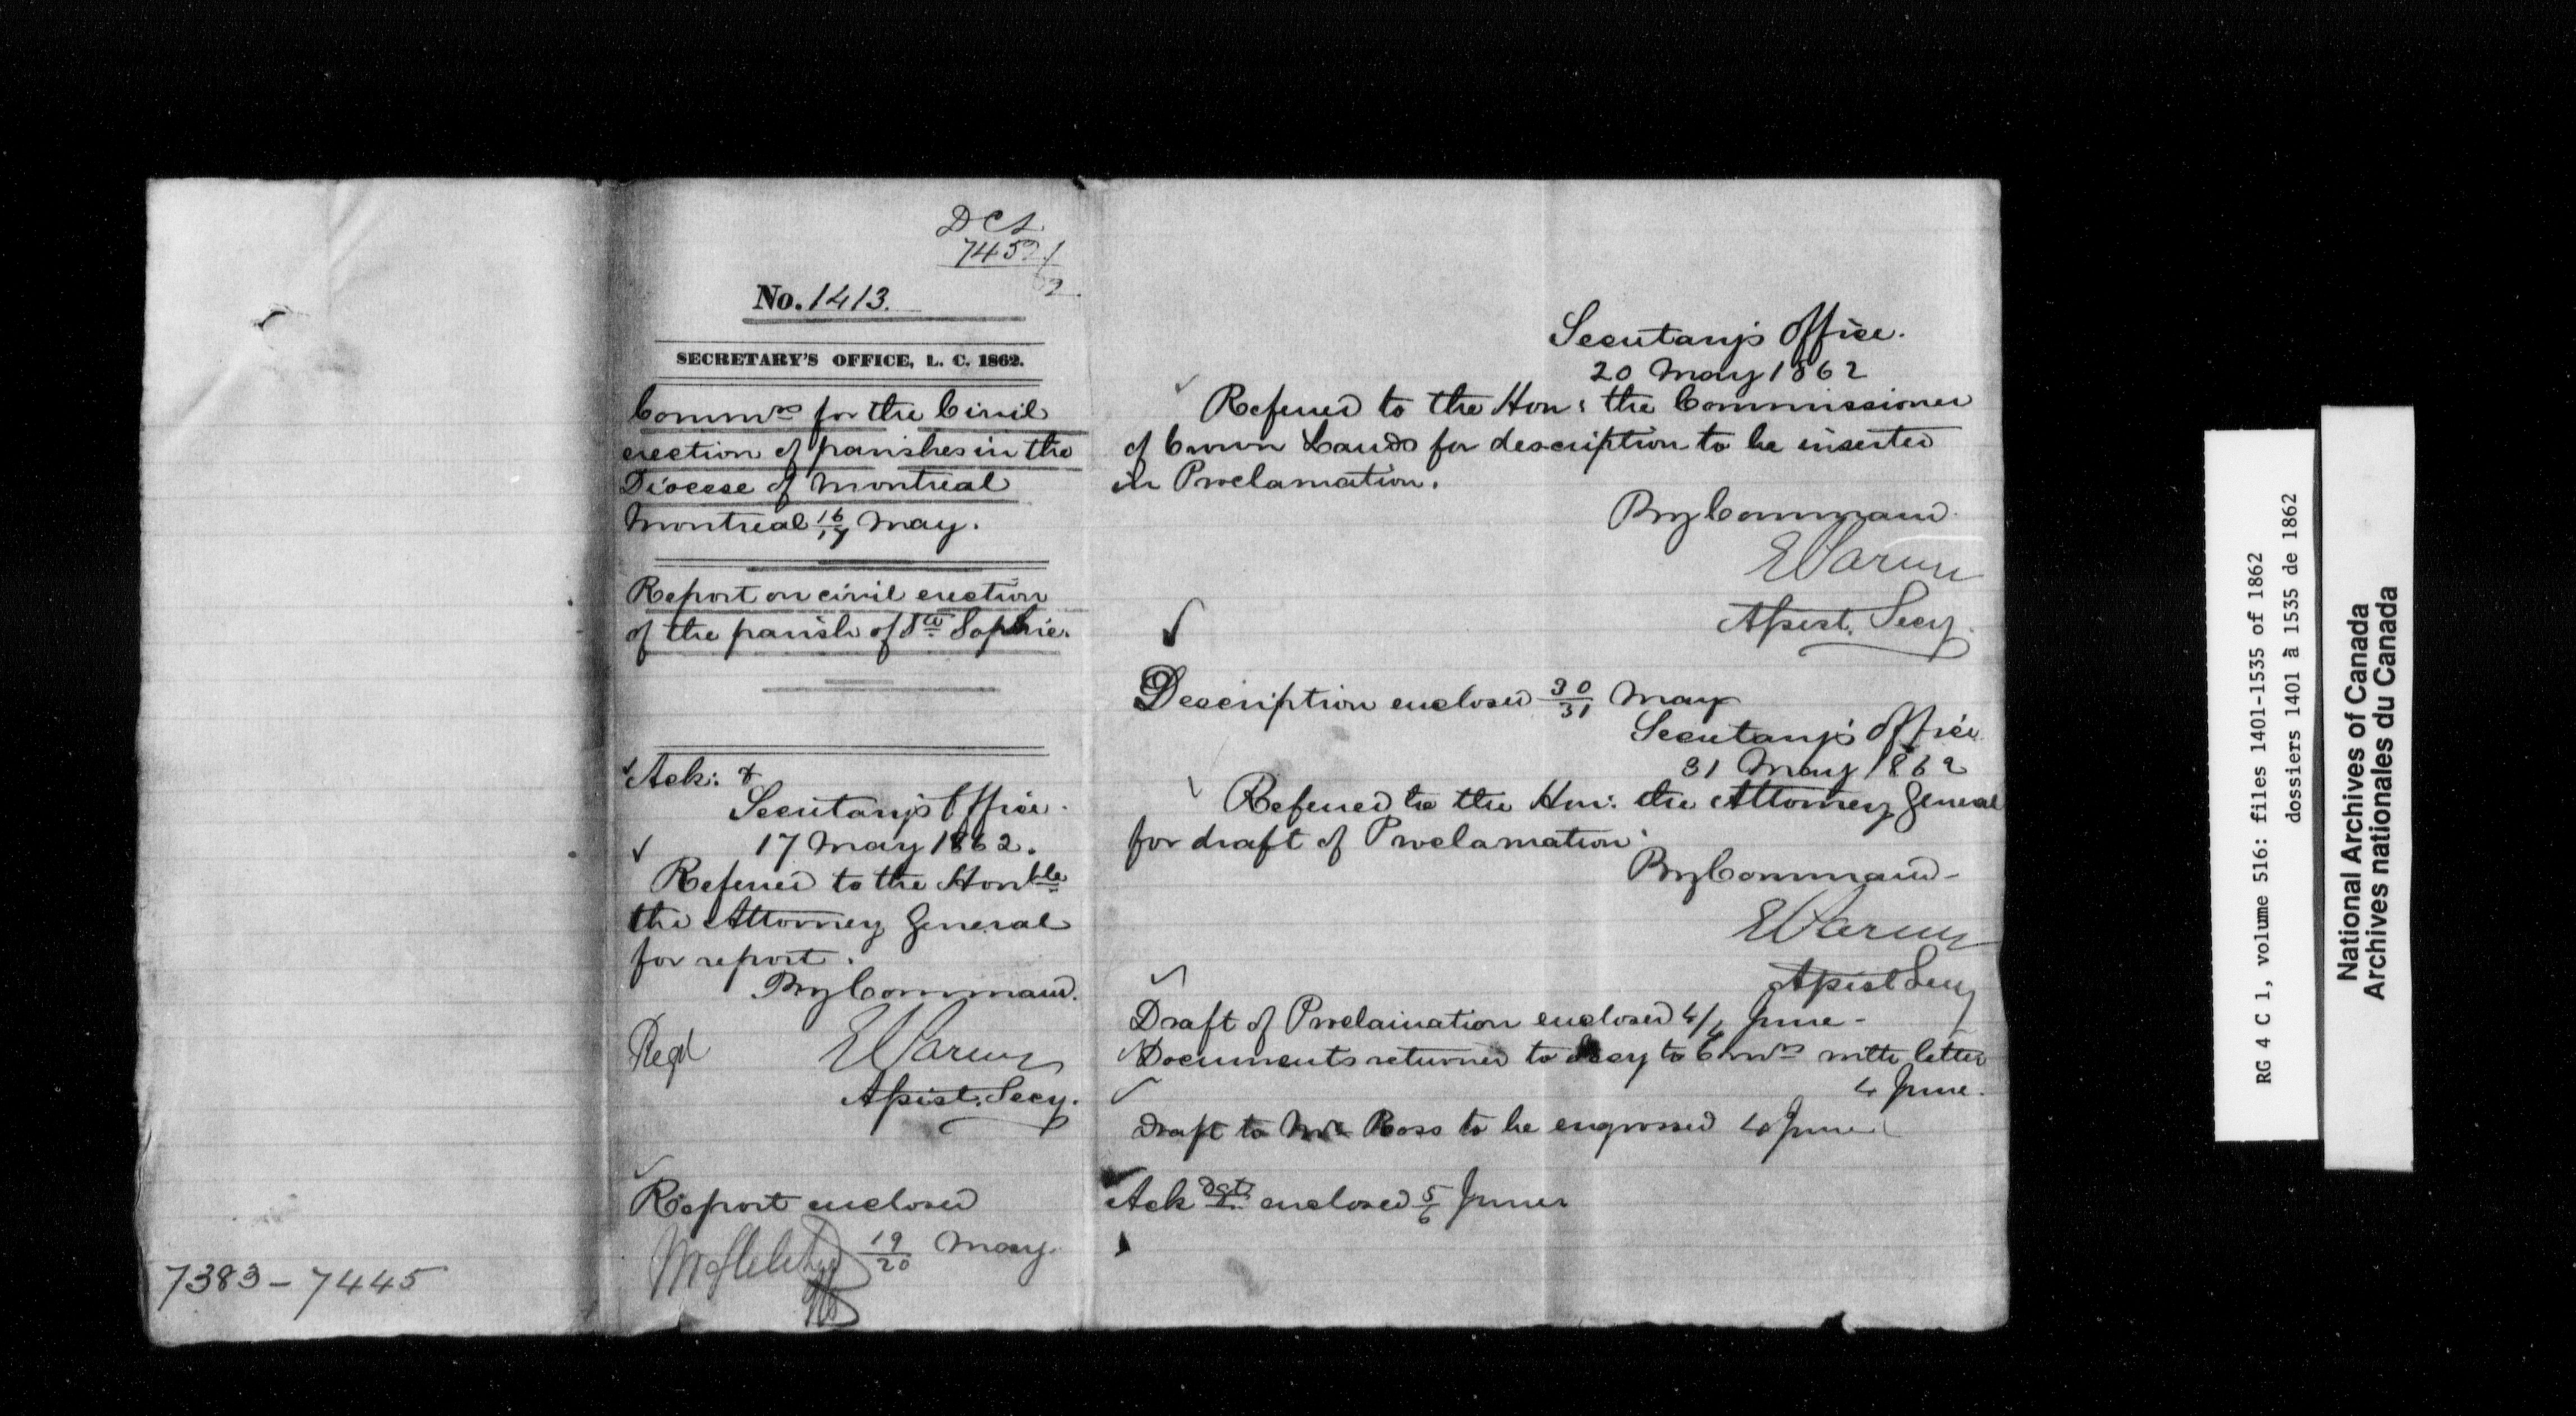 7383-7445
DCL
No. 1413.
SECRETARY'S OFFICE, L. C. 1862.
Commrs for the Civil
erection of parishes in the
Diocese of Montreal
Montreal 16/17 May.
Report on civil erection
of the parish of Ste Sophie.
Ack: &
Secretary's Office.
17 May 1862.
Referred to the Honble
the Attorney General
for report.
By Command.
Regd
Assist. Secy.
Report enclosed
19/20 May.
Secretary's Office.
20 May 1862
Referred to the Hon: the Commissioner
of Crown Lands for description to be inserted
in Proclamation.
By Command.
Assist. Secy.
Description enclosed 30/31 May
Secretary's Office
31 May 1862
Referred to the Hon: the Attorney General
for draft of Proclamation.
By Command-
Assist Secy
Draft of Proclamation enclosed 4/4 June-
Documents returned to Secy to Commrs with letter
4 June.
Draft to Mr Ross to be engrossed 4 June
Ack enclosed 5/6 June
RG 4 C 1, volume 516: files 1401-1535 of 1862
dossiers 1401 à 1535 de 1862
National Archives of Canada
Archives nationales du Canada